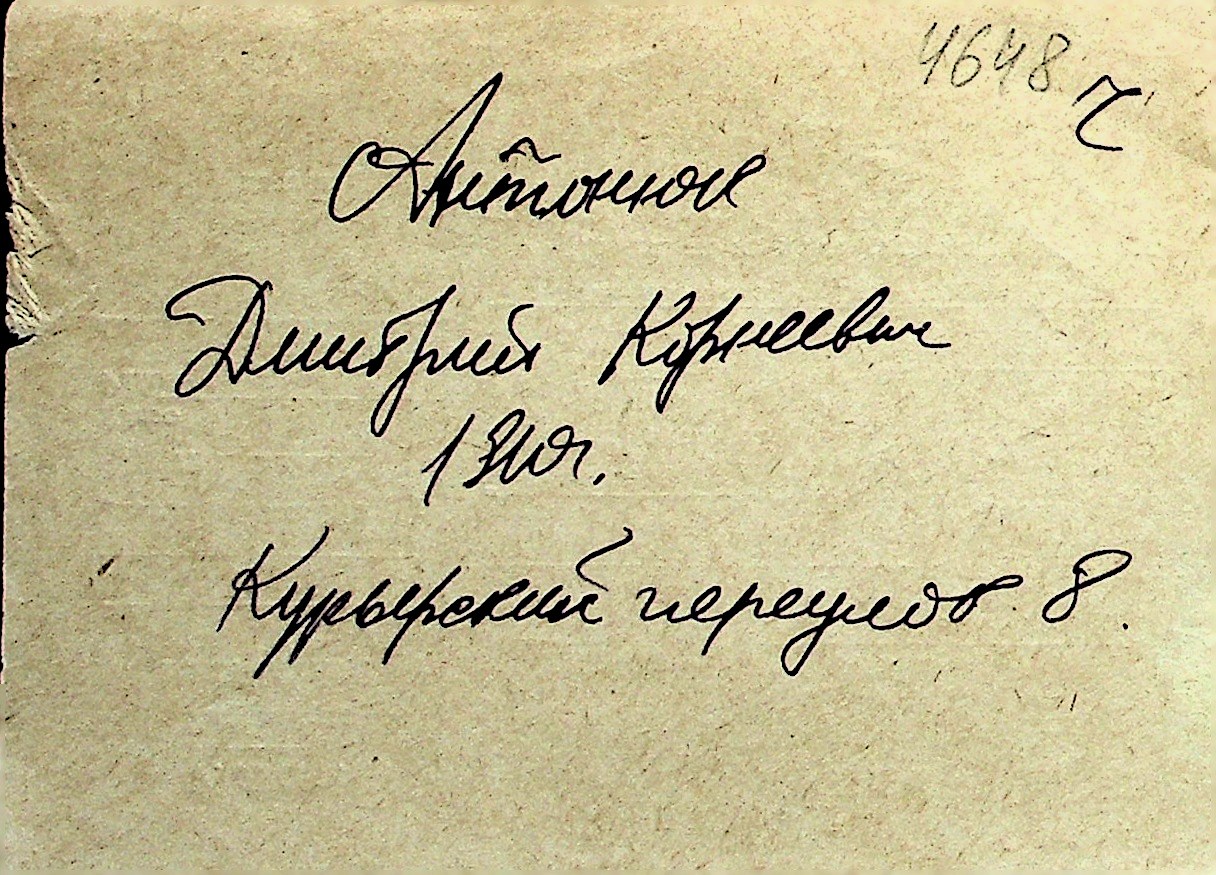 4648
ч
Антонюк
Дмитрий Корнеевич
1910г.
Курьерский переулок 8.